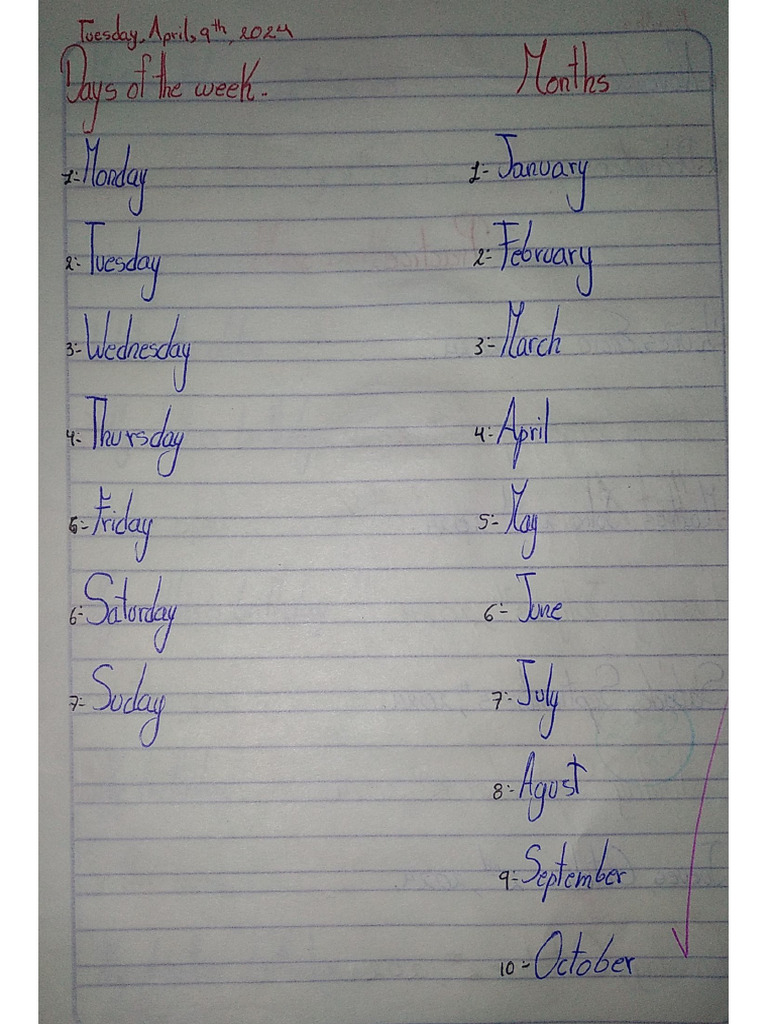 Tuesday, April, 9th, 2024
Days of the week.
1- Monday
2- Tuesday
3- Wednesday
4- Thursday
5- Friday
6- Saturday
7- Suday
Months
1- January
2- February
3- March
4- April
5- May
6- June
7- July
8- Agust
9- September
10- October